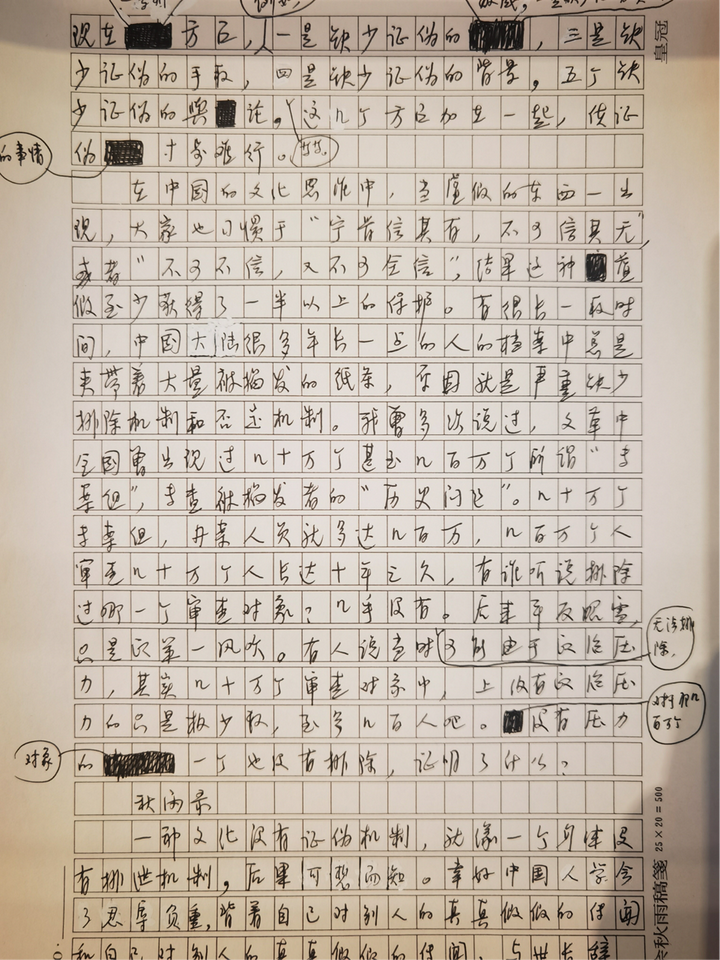 现在方面,一是缺少证伪的,三是缺
少证伪的手段,四是缺少证伪的背景,五个缺
少证伪的舆论。这几个方面加在一起,使证
的事情
伪寸步难行。
在中国的文化思维中,当虚假的东西一出
现,大家也习惯于“宁肯信其有,不可信其无”,
或者“不可不信,又不可全信”,结果这种虚
假至少获得了一半以上的保护。有很长一段时
间,中国大陆很多年长一点的人的档案中总是
夹带着大量被揭发的纸条,原因就是严重缺少
排除机制和否定机制。我曾多次说过,文革中
全国曾出现过几十万个甚至几百万个所谓“专
案组”,专查被揭发者的“历史问题”。几十万个
专案组,办案人员就多达几百万,几百万个人
审查几十万个人长达十年之久,有谁听说排除
过哪一个审查对象?几乎没有。后来平反昭雪,
只是政策一风吹。有人说当时可能由于政治压
无法排
除,
力,其实几十万个审查对象中,上没有政治压
力的只是极少数,至多几百人吧。没有压力
对那几
百万个
对象
的一个也没有排除,证明了什么?
秋雨录
一种文化没有证伪机制,就像一个身体没
有排泄机制,后果可想而知。幸好中国人学会
了忍辱负重,背着自己对别人的真真假假的传闻
和自己对别人的真真假假的传闻,与世长辞
皇冠
余秋雨稿笺 25×20=500